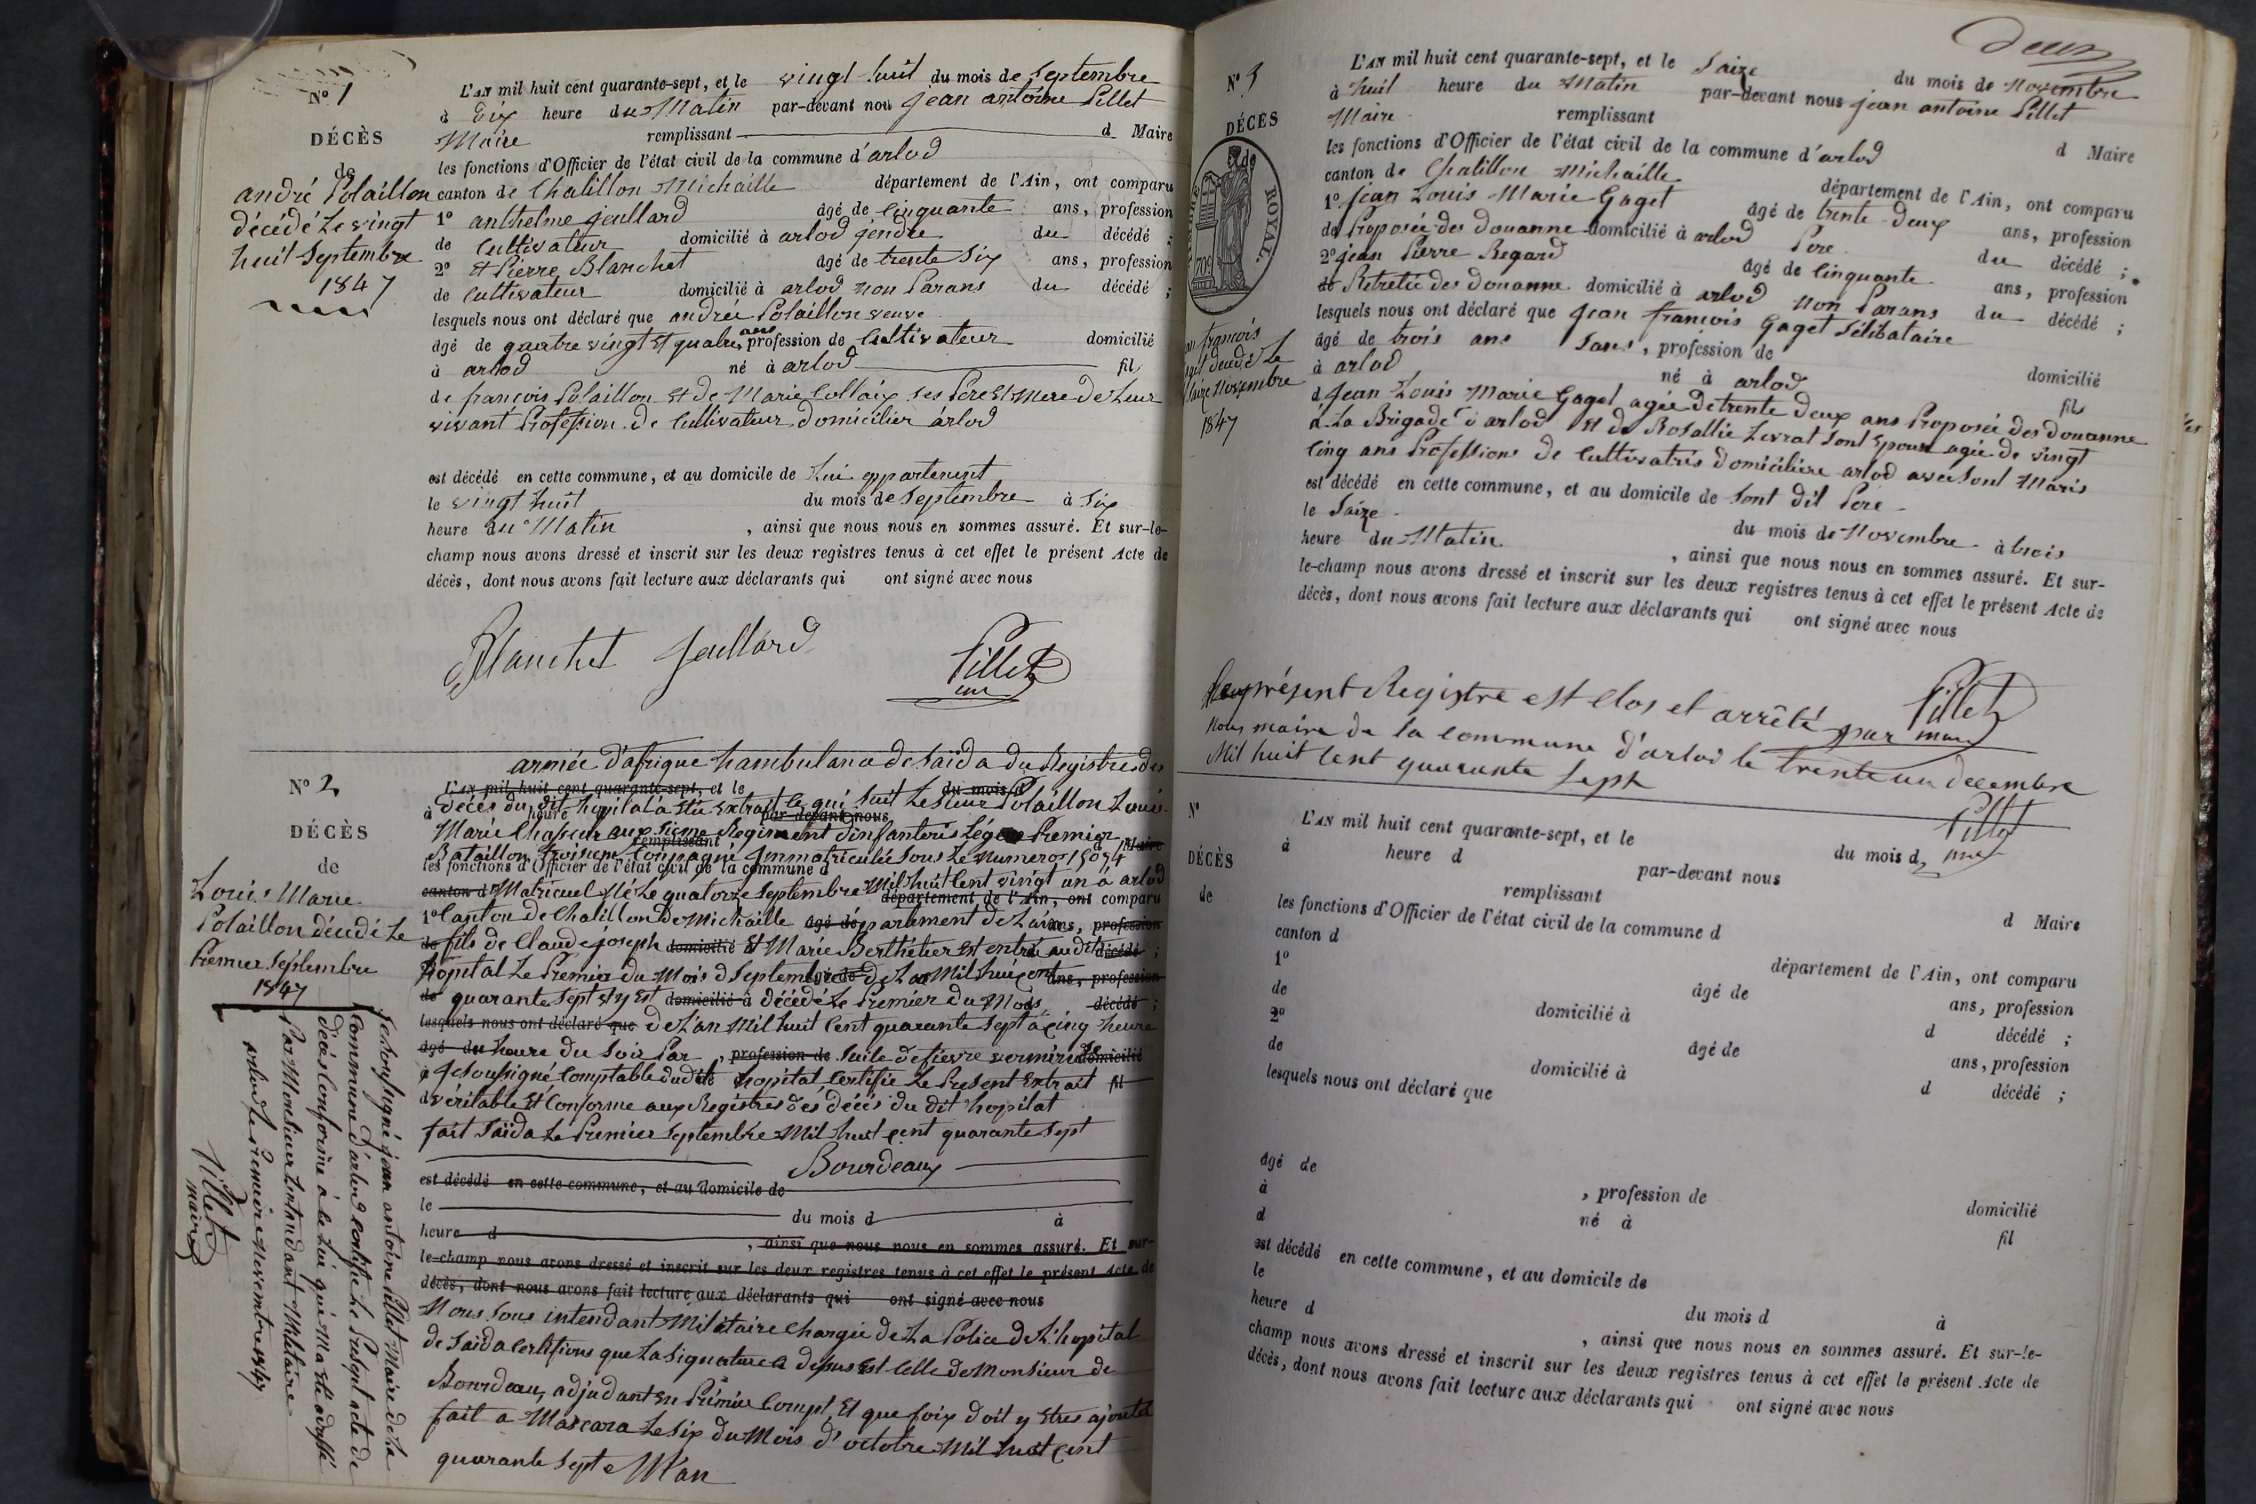 N° 1
DÉCÈS
de
andré Polaillon
décédé Le vingt
huit Septembre
1847
L'AN mil huit cent quarante-sept, et le vingt huit du mois de Septembre
à Dix heure du Matin par-devant nou jean antoine Pillet
Maire remplissant d Maire
les fonctions d'Officier de l'état civil de la commune d'arlod
canton de Chatillon Michaille département de l'Ain, ont comparu
1° anthelme jeullard âgé de Cinquante ans, profession
de Cultivateur domicilié à arlod gendre du décédé ;
2° Et Pierre Blanchet âgé de trente Six ans, profession
de Cultivateur domicilié à arlod non Parans du décédé ;
lesquels nous ont déclaré que andrée Polaillon veuve
âgé de quatre vingt Et quatre ans profession de Cultivateur domicilié
à arlod né à arlod fil
de françois Polaillon Et de Marie Collaix ses Pere Et Mere de Leur
vivant Profession de Cultivateur domicilier arlod
est décédé en cette commune, et au domicile de Lui appartenent
le vingt huit du mois de Septembre à Six
heure du Matin , ainsi que nous nous en sommes assuré. Et sur-le-
champ nous avons dressé et inscrit sur les deux registres tenus à cet effet le présent Acte de
décès, dont nous avons fait lecture aux déclarants qui ont signé avec nous
Blanchet Jeullard Pillet
N° 2
DÉCÈS
de
Louis Marie
Polaillon décédé Le
Premier Septembre
1847
armée d'afrique hambulance de Saïda du Registre des
L'AN mil huit cent quarante-sept, et le du mois d
à décès du dit hopital à Etté Extrait le qui Suit Le Sieur Polaillon Louis
heure par-devant nous
Marie Chasseur aux Regiment d'infanteris Légere Premier
remplissant Maire
Bataillon troisieme Compagné Immatriculée Sous Le numero 15074
les fonctions d'Officier de l'état civil de la commune d
canton d Matricuel Né Le quatorze Septembre Mil huit Cent vingt un à arlod
département de l'Ain, ont comparu
1° Canton de Chatillon De Michaille âgé de partement de L'ain ans, profession
de fils de Claude joseph domicilié Et Marie Berthetier Est entré au dit décédé ;
hopital Le Premier du Mois d Septembre de L'an Mil huit cent ans, profession
de quarante Sept Et y Est domicilié à décédé Le Premier du Mois décédé ;
lesquels nous ont déclaré que de L'an Mil huit Cent quarante Sept à Cinq heure
âgé de heure du Soir Par , profession de Suite de fievre domicilié
à Je Soussigné Comptable dudit hopital, Certifie Le Present Extrait fil
d véritable Et Conforme aux Registres des décés du dit hopital
fait Saïda Le Premier Septembre Mil huit cent quarante Sept
Bourdeaux
est décédé en cette commune, et au domicile de
le du mois d à
heure d , ainsi que nous nous en sommes assuré. Et sur-
le-champ nous avons dressé et inscrit sur les deux registres tenus à cet effet le présent Acte de
décès, dont nous avons fait lecture aux déclarants qui ont signé avec nous
Nous Sous intendant Militaire Chargée de La Police de L'hopital
de Saïda Certifions que La Signature Ci desus Est Celle de Monsieur de
Bourdeau, adjudant En Premier Compt, Et que foix doit y Etres ajouté
fait a Mascara Le Six du Mois d'octobre Mil huit Cent
quarante Sept
Je Soussigné jean antoine Pillet Maire de La
Commune d'arlod Certifie Le Present acte de
décés Conforme à Celui qui M'a été adressé
Par Monsieur L'intendant Militaire
arlod Le Premier novembre 1847
Pillet
maire
deux
N° 3
DÉCÈS
de
ROYAL.
70c
françois
décédé Le
Saize Novembre
1847
L'AN mil huit cent quarante-sept, et le Saize du mois de Novembre
à huit heure du Matin par-devant nous jean antoine Pillet
Maire remplissant d Maire
les fonctions d'Officier de l'état civil de la commune d'arlod
canton de Chatillon Michaille département de l'Ain, ont comparu
1° Jean Louis Marie Gaget âgé de trente deux ans, profession
de Proposée des douanne domicilié à arlod Pere du décédé ;
2° jean Pierre Regard âgé de Cinquante ans, profession
de Retretée des douanne domicilié à arlod non Parans du décédé ;
lesquels nous ont déclaré que Jean françois Gaget Sélibataire
âgé de trois ans Sans, profession de domicilié
à arlod né à arlod fils
d Jean Louis Marie Gaget agée de trente deux ans Proposée des douanne
à La Brigade d'arlod Et de Rosallie Levrat Sont Epouse agée de vingt
Cinq ans Professions de Cultivatris domicilière arlod avec Sont Maris
est décédé en cette commune, et au domicile de Sont dit Pere
le Saize du mois de Novembre à trois
heure du Matin , ainsi que nous nous en sommes assuré. Et sur-
le-champ nous avons dressé et inscrit sur les deux registres tenus à cet effet le présent Acte de
décès, dont nous avons fait lecture aux déclarants qui ont signé avec nous
Pillet
Le présent Registre est Clos et arrêté par
Nous maire de la commune d'arlod le trente un decembre
Mil huit Cent quarante Sept
Pillet
N°
DÉCÈS
de
L'AN mil huit cent quarante-sept, et le du mois d
à heure d par-devant nous
remplissant d Maire
les fonctions d'Officier de l'état civil de la commune d
canton d département de l'Ain, ont comparu
1° âgé de ans, profession
de domicilié à d décédé ;
2° âgé de ans, profession
de domicilié à d décédé ;
lesquels nous ont déclaré que
âgé de , profession de domicilié
à né à fil
d
est décédé en cette commune, et au domicile de
le du mois d à
heure d , ainsi que nous nous en sommes assuré. Et sur-le-
champ nous avons dressé et inscrit sur les deux registres tenus à cet effet le présent Acte de
décès, dont nous avons fait lecture aux déclarants qui ont signé avec nous